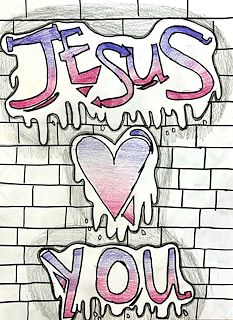 JESUS
YOU